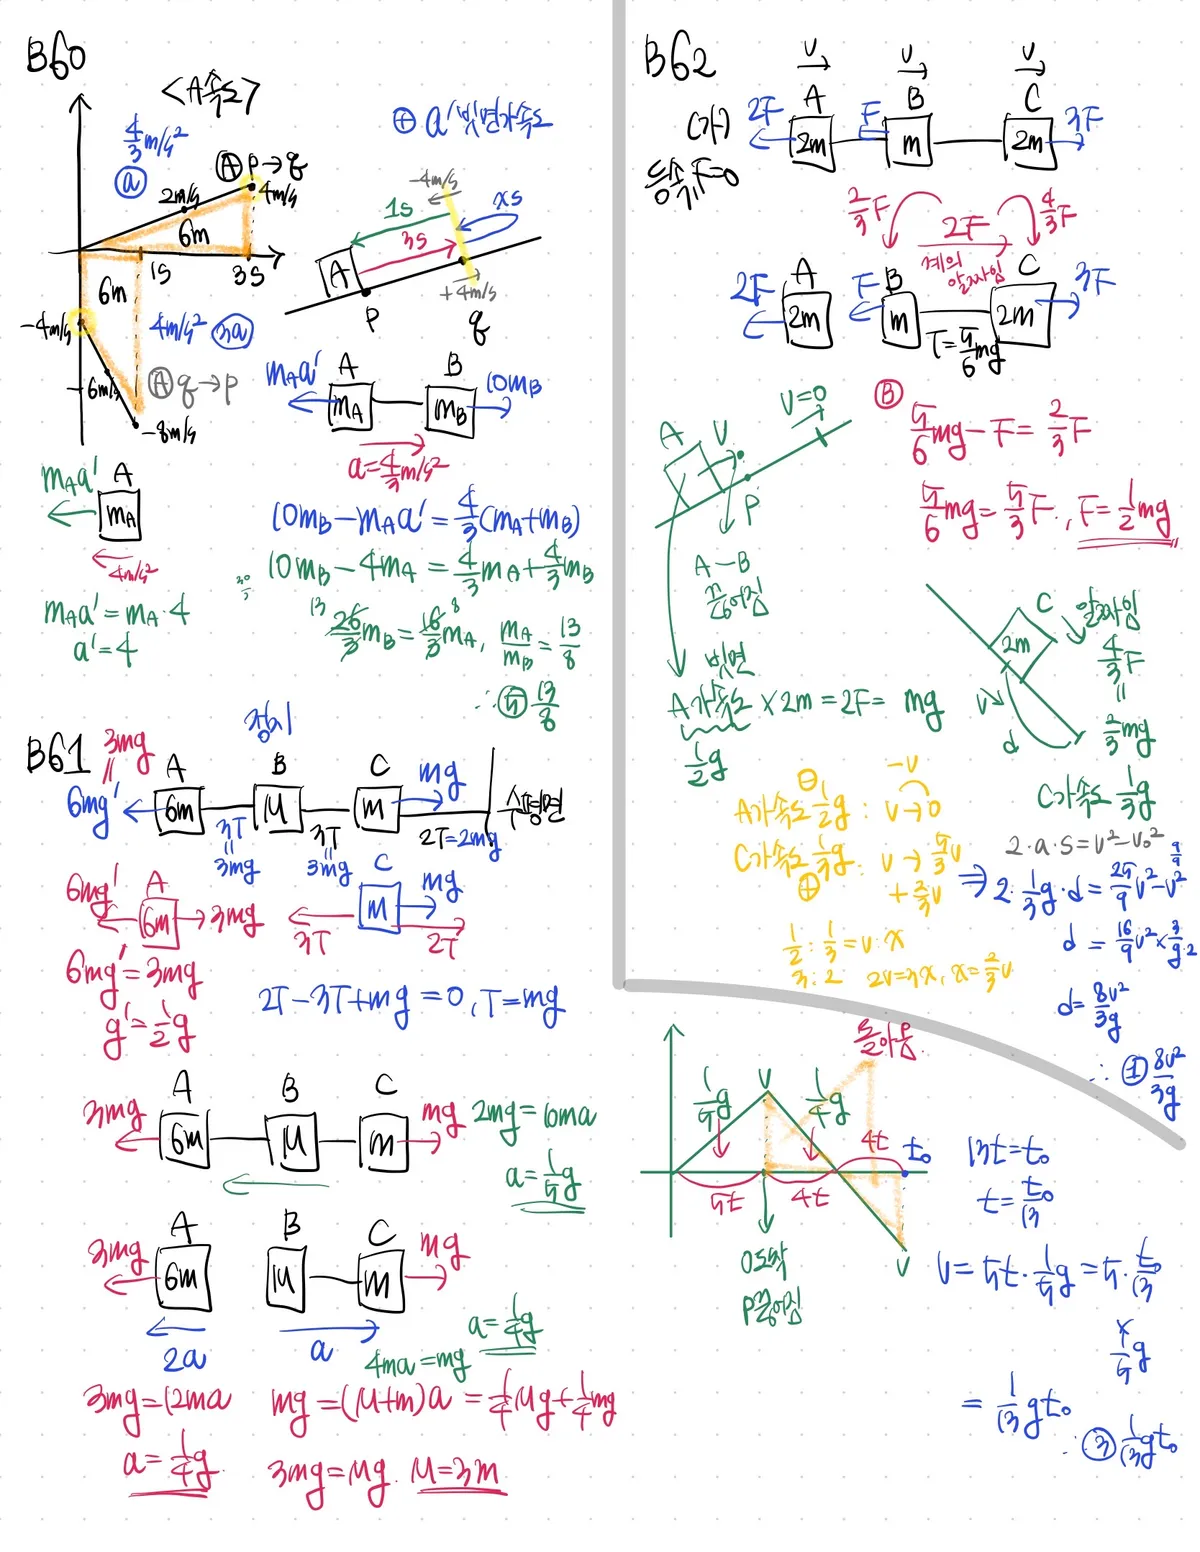 B60
<A속도>
4/3 m/s²
ⓐ
Ⓐ P→q
2m/s
4m/s
6m
1s
3s
6m
-4m/s
4m/s² 3a
-6m/s
Ⓐ q→p
-8m/s
⊕ a' 빗면가속도
-4m/s
1s
xs
3s
A
+4m/s
P
q
mAa'
A
B
10mB
mA
mB
a=4/3 m/s²
mAa' A
mA
4m/s²
mAa' = mA·4
a'=4
10mB-mAa' = 4/3(mA+mB)
10mB-4mA = 4/3 mA+4/3 mB
13 26/3 mB = 16/3 mA 8, mA/mB = 13/8
∴ ⑤ 13/8
B61
3mg
=
정지
A
B
C
mg
6mg'
6m
M
m
수평면
3T
3T
2T=2mg
=
=
3mg
3mg
6mg'
A
6m
3mg
C
m
mg
3T
2T
6mg'=3mg
g'=1/2 g
2T-3T+mg=0, T=mg
A
B
C
3mg
6m
M
m
mg
2mg=10ma
a=1/5 g
A
B
C
3mg
6m
M
m
mg
2a
a
a=1/4 g
4ma=mg
3mg=12ma
a=1/4 g
mg=(M+m)a = 1/4 Mg+1/4 mg
3mg=Mg. M=3m
B62
v
v
v
(가)
2F
A
F
B
C
3F
2m
m
2m
등속, F=0
2/3 F
2F
4/3 F
계의 알짜힘
2F
A
F
B
C
3F
2m
m
2m
T=5/6 mg
Ⓑ
5/6 mg-F = 2/3 F
5/6 mg = 5/3 F, F=1/2 mg
v=0
A
v
P
A-B
끊어짐
빗면
A가속도 × 2m = 2F = mg
1/2 g
C
2m
알짜힘
4/3 F
=
2/3 mg
v
d
C가속도 1/3 g
⊖
-v
A가속도 1/2 g : v→0
C가속도 1/3 g : v→5/3 v
⊕
+2/3 v
1/2 : 1/3 = v : x
3 : 2
2v=3x, x=2/3 v
2·a·s = v²-v₀²
⇒ 2·1/3 g·d = 25/9 v²-v² 9/9
d = 16/9 v² × 3/g·2
d = 8v²/3g
∴ ① 8v²/3g
돌아옴.
1/5 g
v
1/4 g
4t
t₀
5t
4t
v
0도착
P끊어짐
13t=t₀
t=t₀/13
v=5t·1/5 g = 5·t₀/13
× 1/5 g
= 1/13 gt₀
∴ ③ 1/13 gt₀